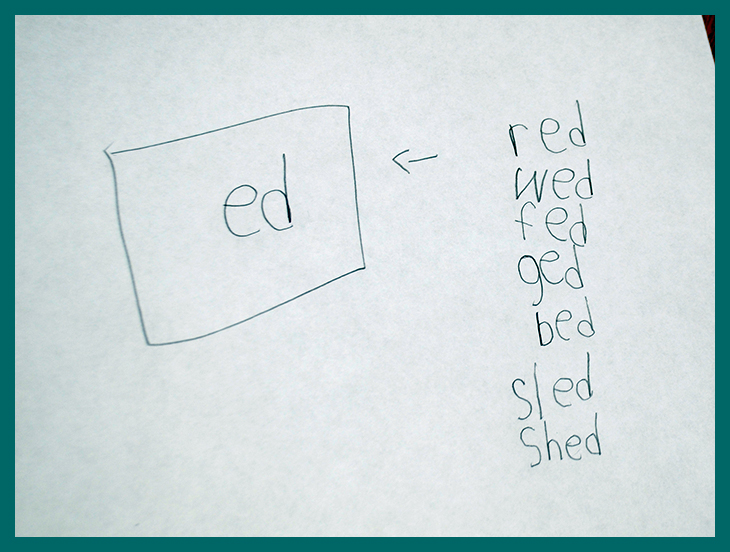 ed
red
wed
fed
ged
bed
sled
shed